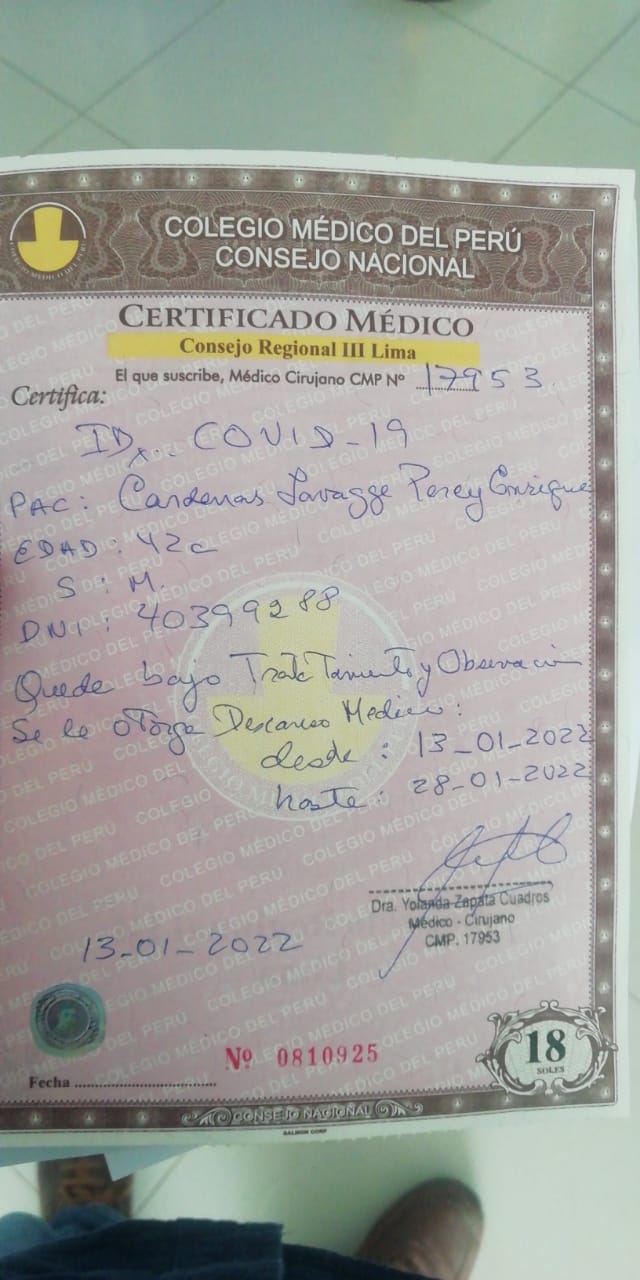 COLEGIO MÉDICO DEL PERÚ
CONSEJO NACIONAL
CERTIFICADO MÉDICO
Consejo Regional III Lima
El que suscribe, Médico Cirujano CMP Nº 17953
Certifica:
IDx.. COVID-19
PAC: Cardenas Lavagge Percy Enrique
EDAD: 42a
S: M.
DNI: 40399288
Quede bajo Tratamiento y Observación
Se le oTorga Descanso Medico:
desde: 13-01-2022
hasta: 28-01-2022
Dra. Yolanda Zapata Cuadros
Médico - Cirujano
CMP. 17953
13-01-2022
Nº 0810925
18
SOLES
Fecha
CONSEJO NACIONAL
SALMON CORP